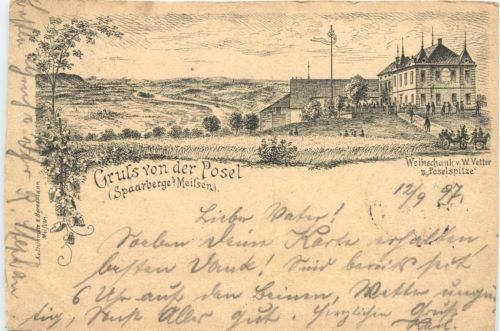 Gruſs von der Posel
(Spaarberge b/ Meiſsen).
Weinschank v. W. Vetter
z. Poselspitze
12/9 97.
Lieber Vater!
Soeben Deine Karte erhalten
besten Dank! Sind bereits seit
6 Uhr auf den Beinen, Wetter ungün
tig, sonst Alles gut. Herzlichen Gruß